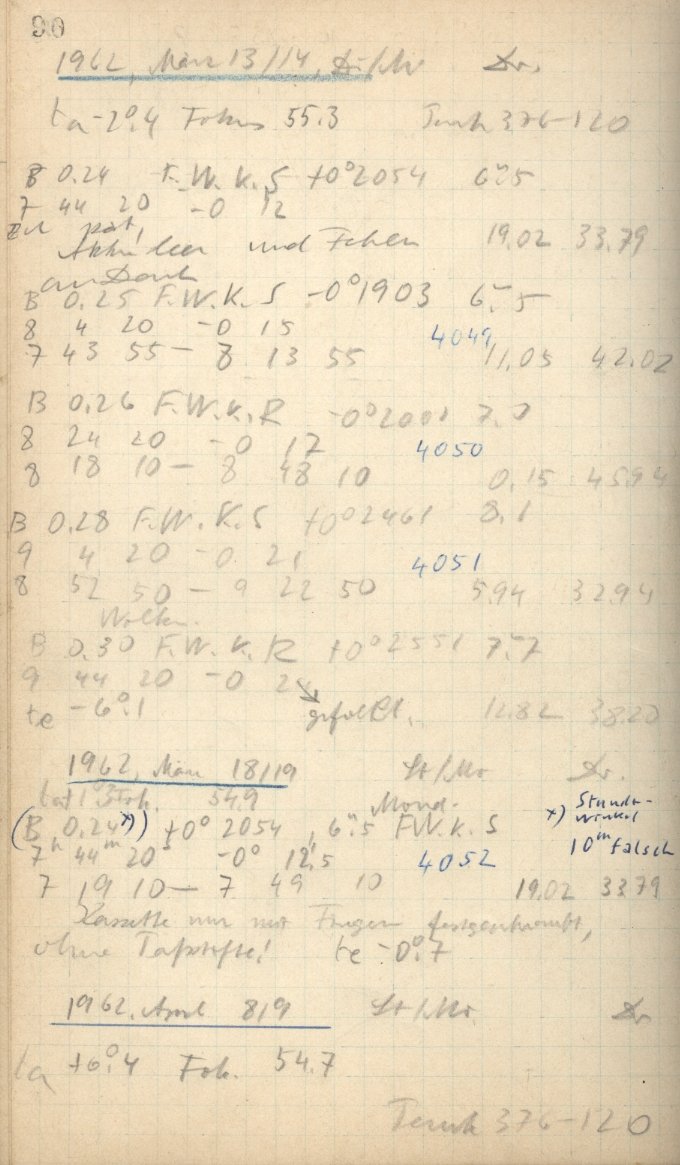 90
1962, März 13/14, Di/Mi Dr.
ta -2°.4 Fokus 55.3 376-120
B 0.24 F.W.K.S +0°2054 6m.5
7 44 20 -0 12
und 19.02 33.79
B 0.25 F.W.K.S -0°1903 6m.5
8 4 20 -0 15 4049
7 43 55 - 8 13 55 11.05 42.02
B 0.26 F.W.K.R -0°2001 7.0
8 24 20 -0 17 4050
8 18 10 - 8 48 10 0.15 45.94
B 0.28 F.W.K.S +0°2461 8.1
9 4 20 -0 21 4051
8 52 50 - 9 22 50 5.94 32.94
Wolken.
B 0.30 F.W.K.R +0°2551 7m.7
9 44 20 -0
te -6°.1 12.82 38.20
1962, März 18/19 Dr.
54.9 Mond.
(B 0.24 x)) +0° 2054, 6m.5 FWK.S x) Stunden-
winkel
7h 44m 20s -0° 12.5 4052 10m falsch
7 19 10 - 7 49 10 19.02 33.79
Kassette nur mit Fingern festgeschraubt,
ohne te -0°.7
1962, April 8/9 Dr
ta +6°.4 Fok. 54.7
376-120